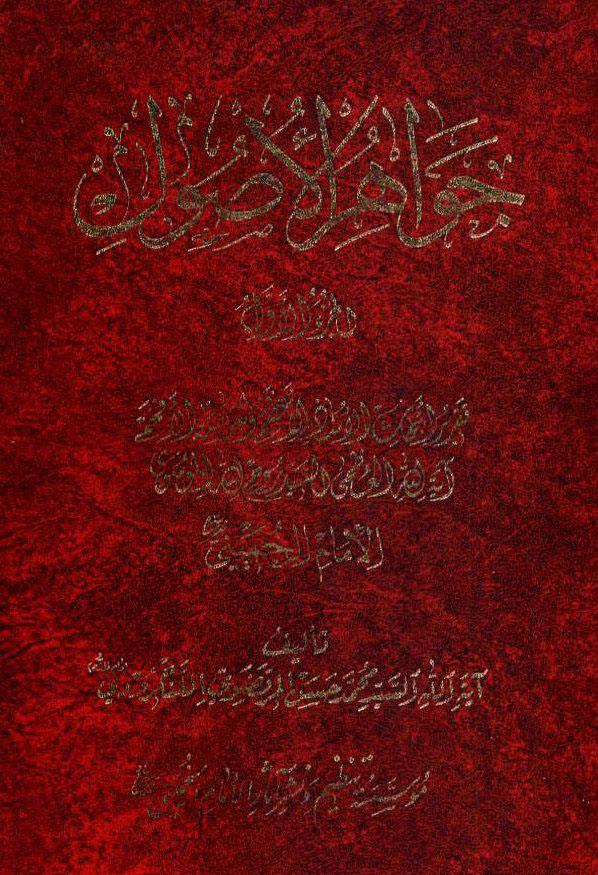 جَوَاهِرُ الأُصُولِ
الجزء الأول
تقرير أبحاث الأستاذ الأعظم والعلامة الأفخم
آية الله العظمى السيد روح الله الموسوي
الإمام الخميني
تأليف
آية الله السيد محمد حسن المرتضوي اللنگرودي
مؤسسة تنظيم ونشر آثار الإمام الخميني